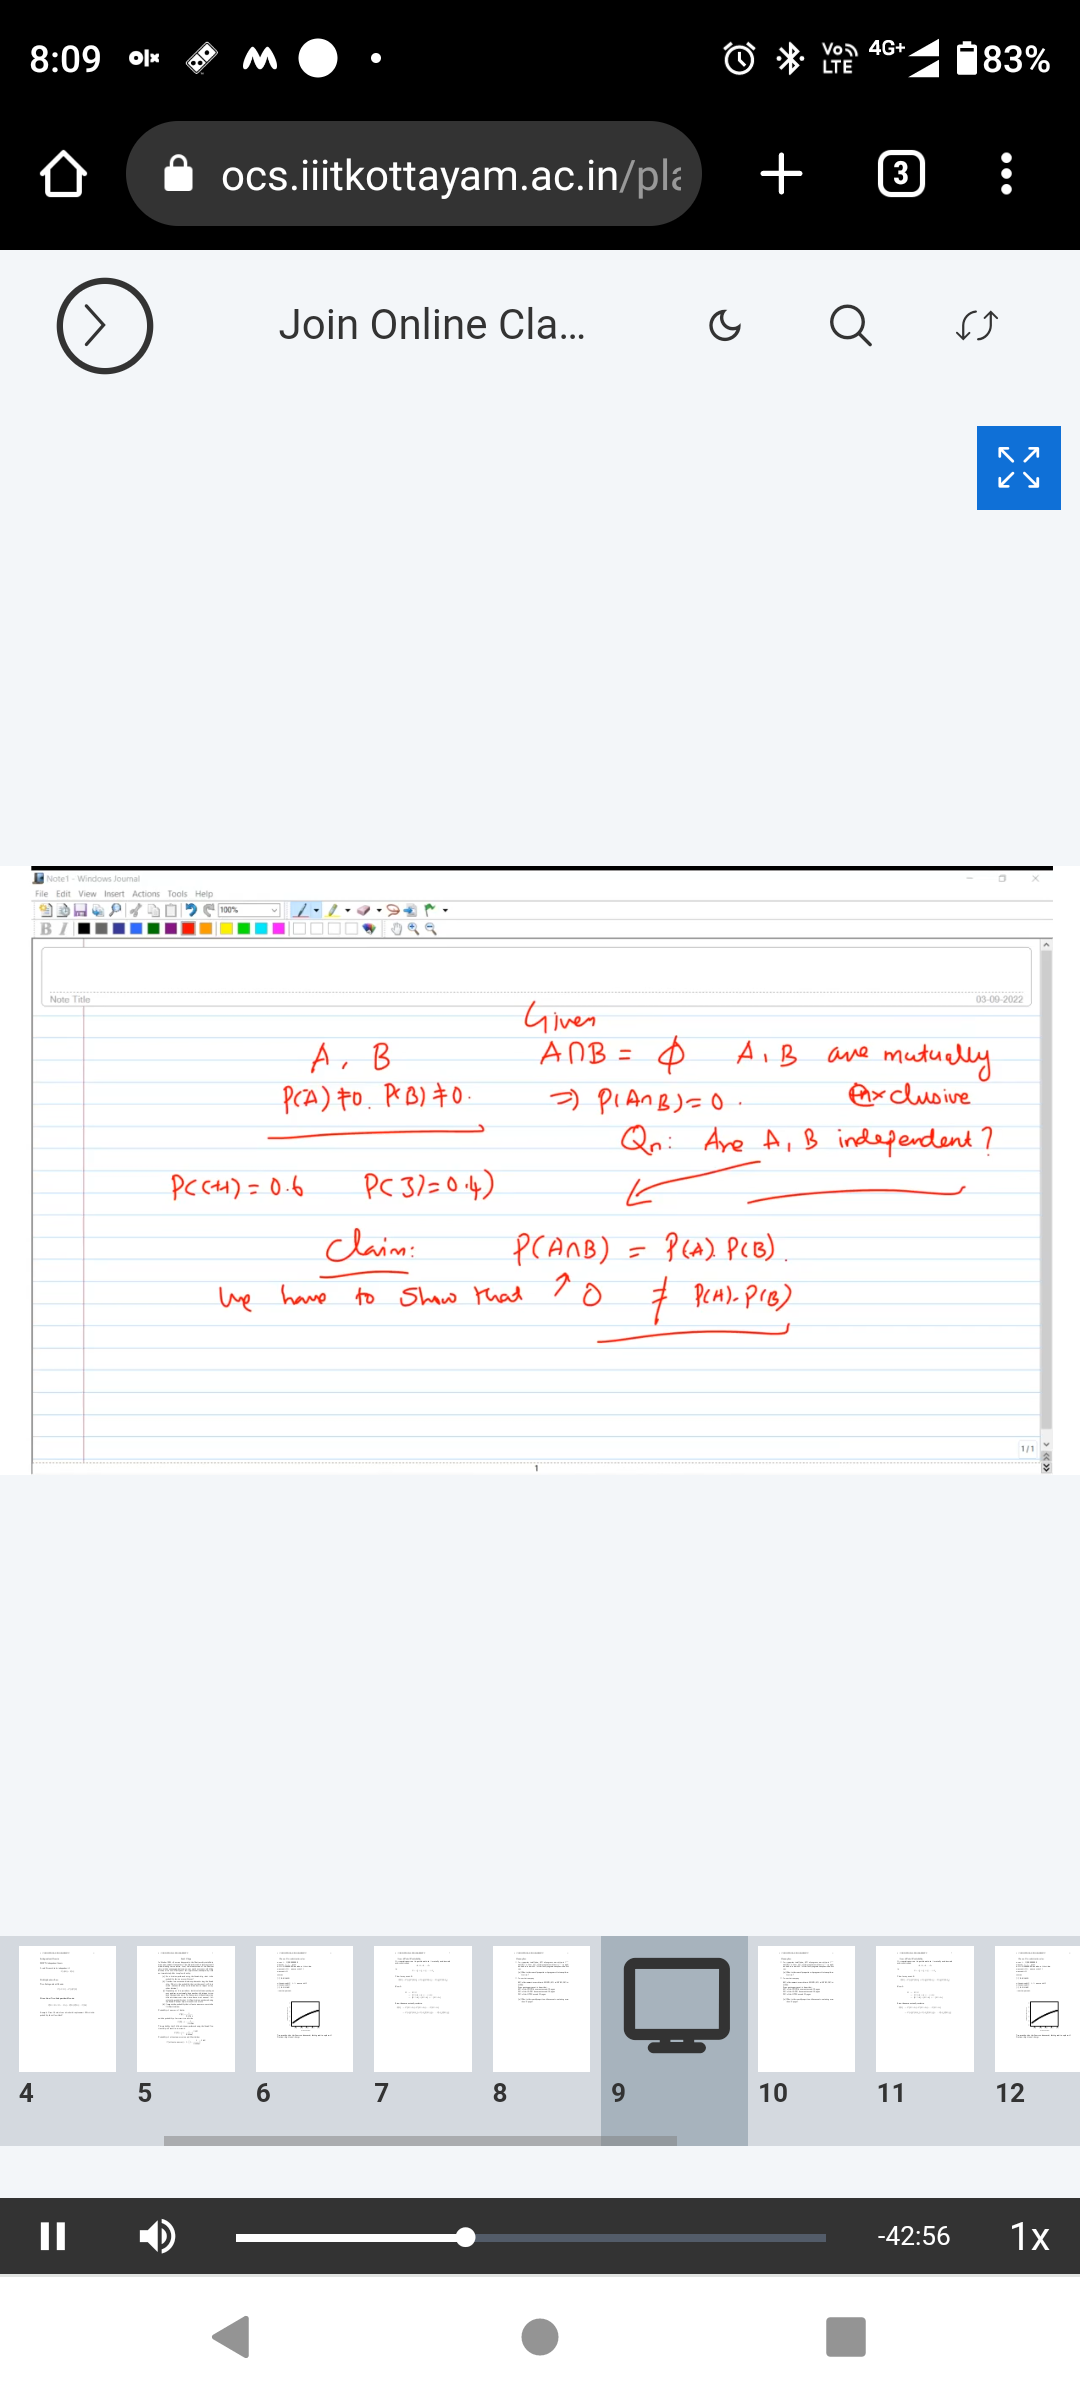 8:09 olx VoLTE 4G+ 83%
ocs.iiitkottayam.ac.in/pla
3
Join Online Cla...
Note1 - Windows Journal
File Edit View Insert Actions Tools Help
100%
B I
Note Title 03-09-2022
Given
A, B A∩B = ϕ A, B are mutually
P(A) ≠0. P(B) ≠0. ⇒ P(A∩B)=0. exclusive
Qn: Are A, B independent?
P(H) = 0.6 P(3)=0.4)
Claim: P(A∩B) = P(A). P(B).
We have to show that 0 ≠ P(A).P(B)
1/1
1
4 5 6 7 8 9 10 11 12
-42:56 1x